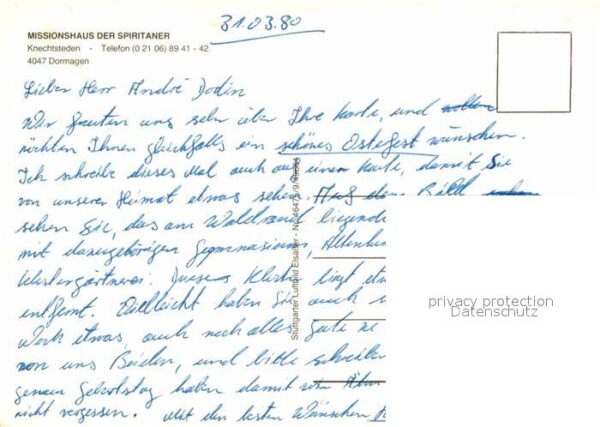 31.03.80
MISSIONSHAUS DER SPIRITANER
Knechtsteden - Telefon (0 21 06) 89 41 - 42
4047 Dormagen
Lieber Herr André Dodin
Wir freuten uns sehr über Ihre Karte, und
möchten Ihnen gleichfalls ein schönes Osterfest wünschen.
Ich schreibe dieses Mal auch auf einem Karte, damit Sie
von unserer Heimat etwas sehen. Auf dem Bild
sehen Sie, das am Waldrand liegende
mit dazugehörigen Gymnasium,
Klostergärtnerei. Dieses Kloster liegt
entfernt. Vielleicht haben Sie auch
Noch etwas, auch noch alles Gute
von uns Beiden, und bitte schreiben
genauen Geburtstag haben damit wir
nicht vergessen. Mit den besten Wünschen
Stuttgarter Luftbild Elsäßer
privacy protection
Datenschutz